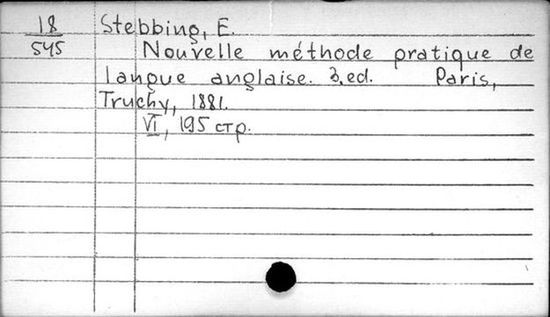 18 Stebbing, E.
545 Nouvelle méthode pratique de
langue anglaise. 3.ed. Paris,
Truchy, 1881.
VI, 195 стр.